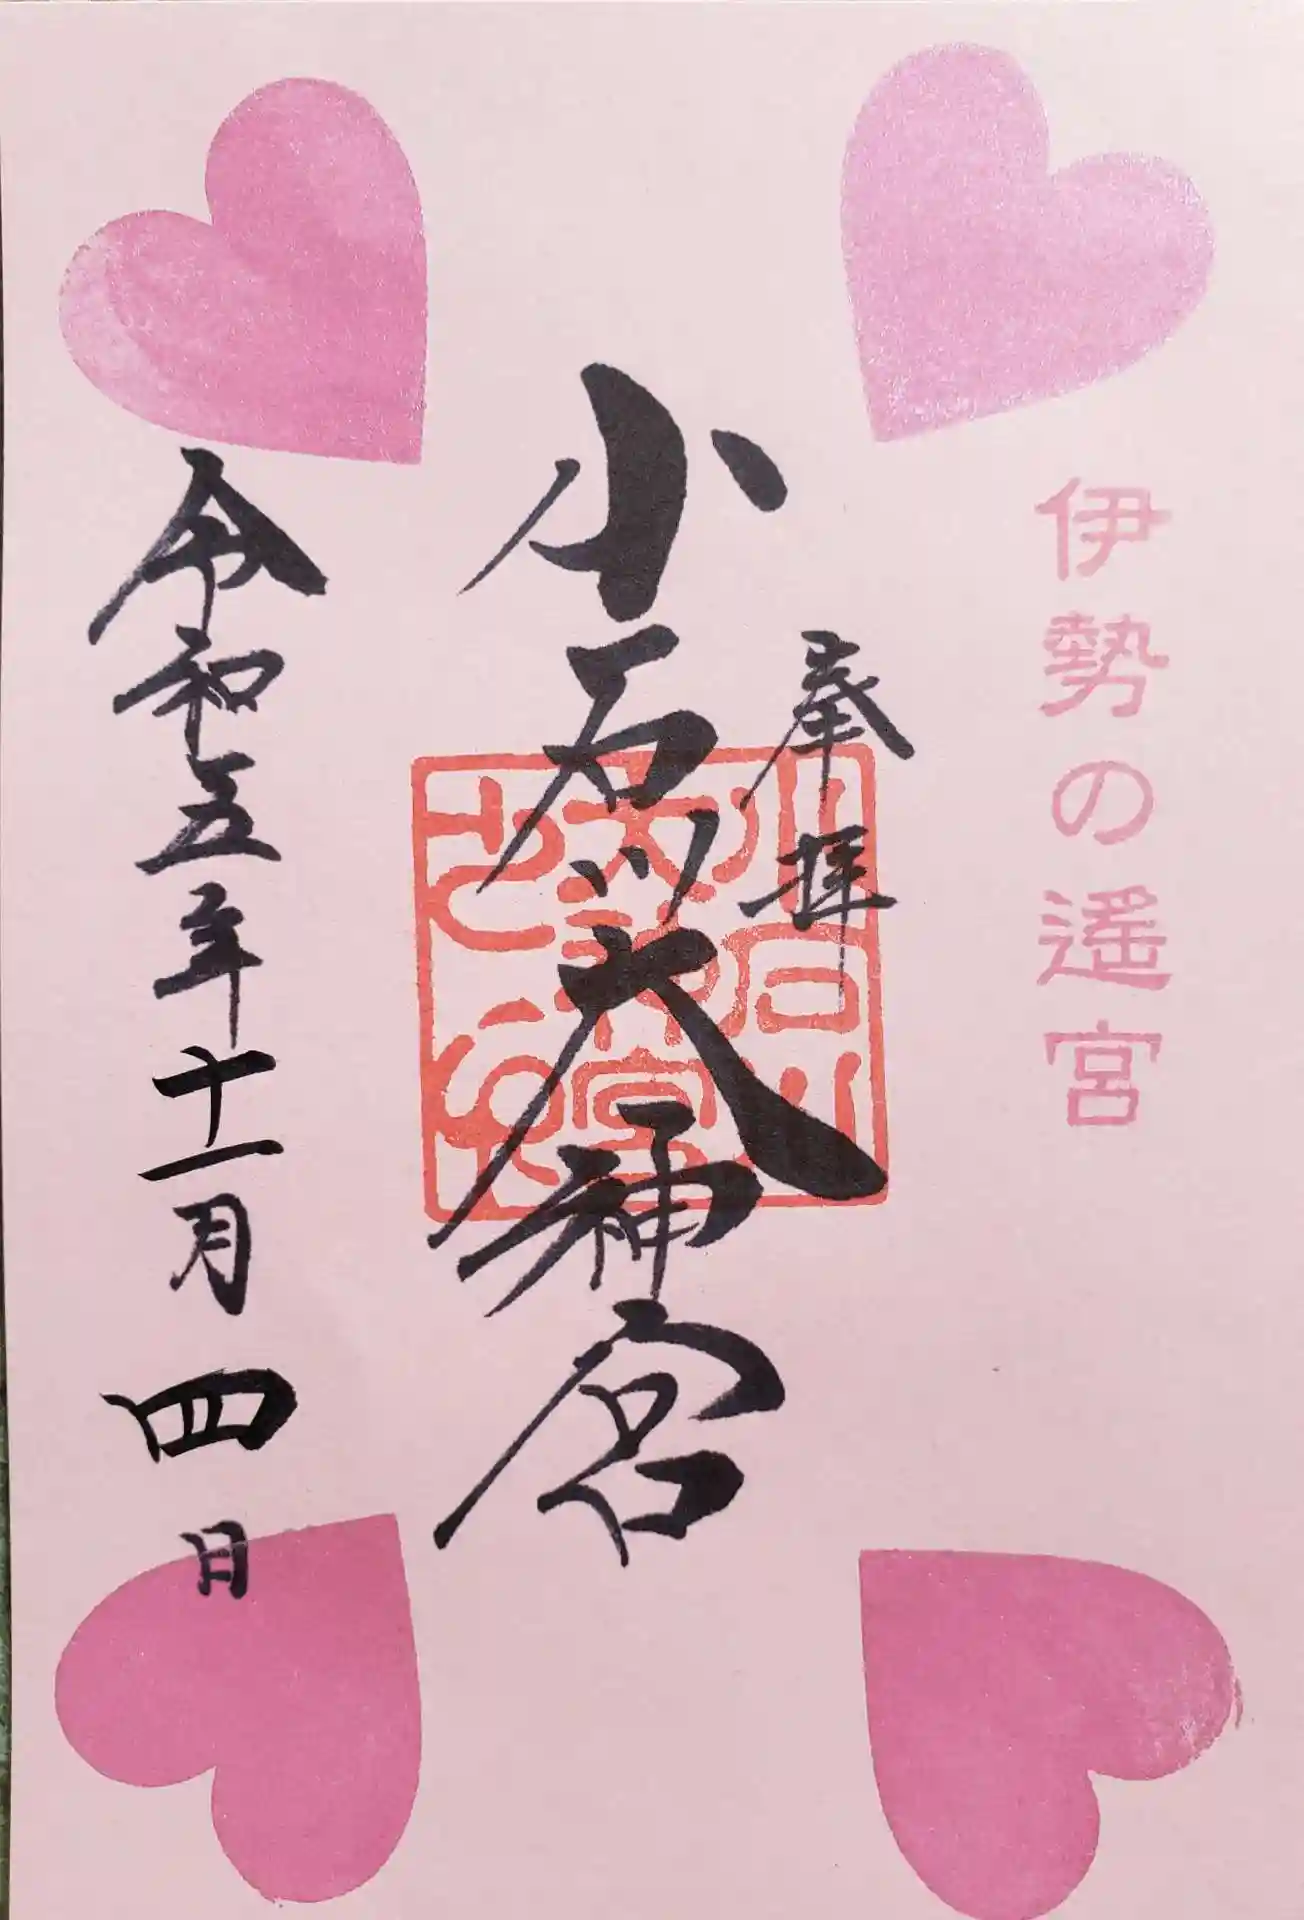 伊勢の遥宮
奉拝
小石川大神宮
小石川
大神宮
令和五年十一月四日